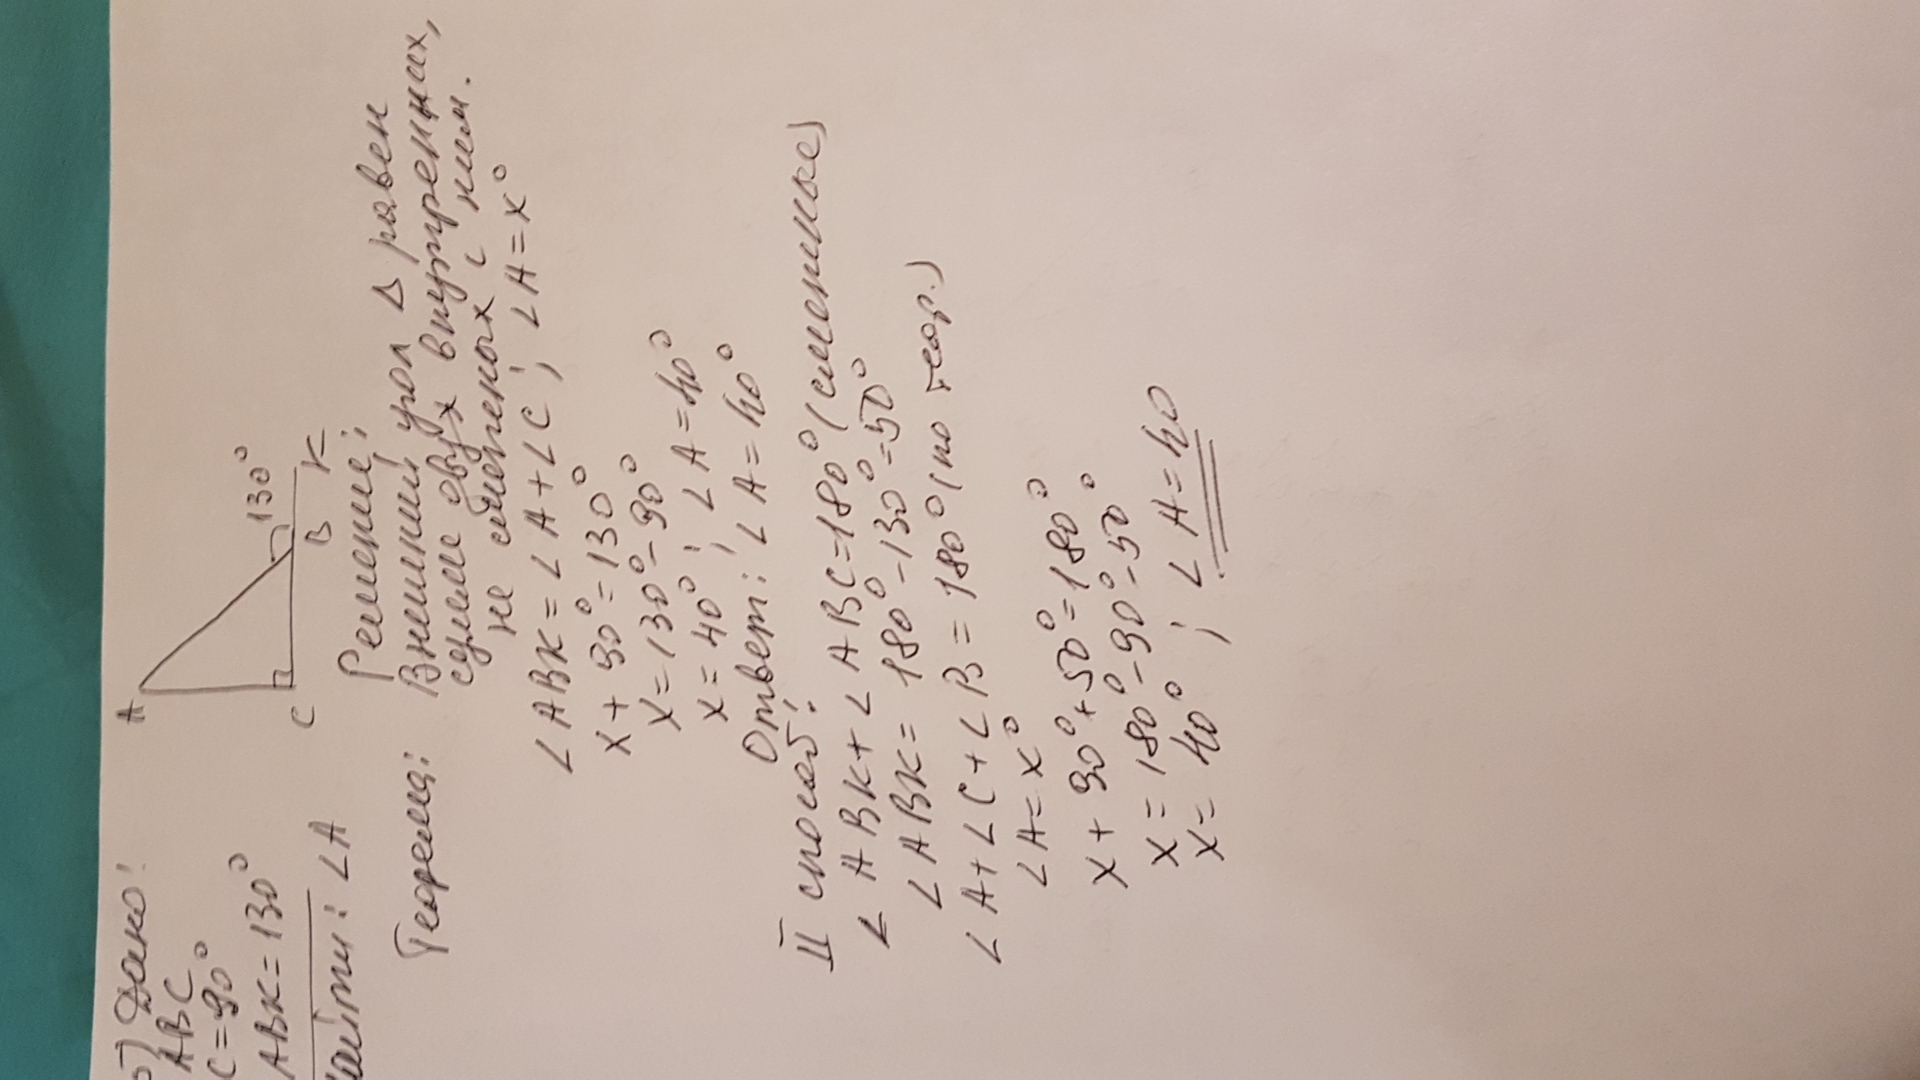 Дано:
ABC
C=90°
ABK=130°
Найти: ∠A
A
C
B
K
130°
Решение:
Теорема: Внешний угол Δ равен
сумме двух внутренних,
не смежных с ним.
∠ABK=∠A+∠C; ∠A=x°
x+90°=130°
x=130°-90°
x=40°; ∠A=40°
Ответ: ∠A=40°
II способ:
∠ABK+∠ABC=180° (смежные)
∠ABK=180°-130°=50°
∠A+∠C+∠B=180° (по теор.)
∠A=x°
x+90°+50°=180°
x=180°-90°-50°
x=40°; ∠A=40